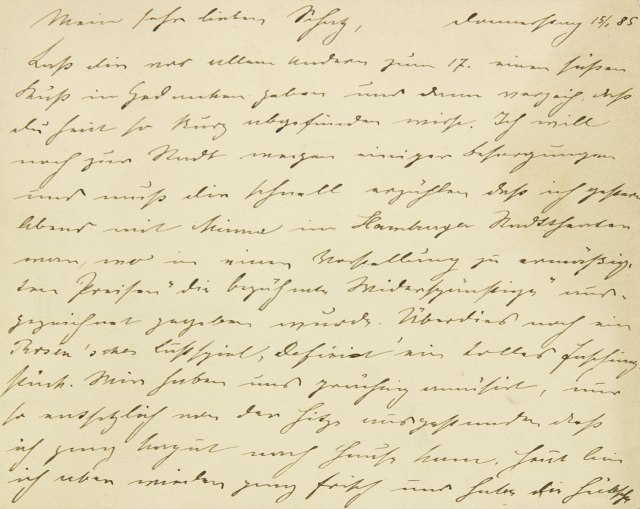 Mein sehr lieber Schatz, Donnerstag 15/1. 85
Laß dir vor allem andern zum 17. einen süßen
Kuß in Gedanken geben und dann verzeih, daß
du heut so kurz abgefunden wirst. Ich will
noch zur Stadt wegen einiger Besorgungen
und muß dir schnell erzählen daß ich gestern
Abend mit Minna im Hamburger Stadttheater
war, wo in einer Vorstellung zu ermäßig-
ten Preisen "die bezähmte Widerspänstige" aus-
gezeichnet gegeben wurde. Überdies noch ein
Lustspiel, ein tolles Faschings
stück. Wir haben uns prächtig amüsirt, nur
so entsetzlich von der Hitze ausgestanden daß
ich ganz kaput nach Hause kam. Heut bin
ich aber wieder ganz frisch und habe die